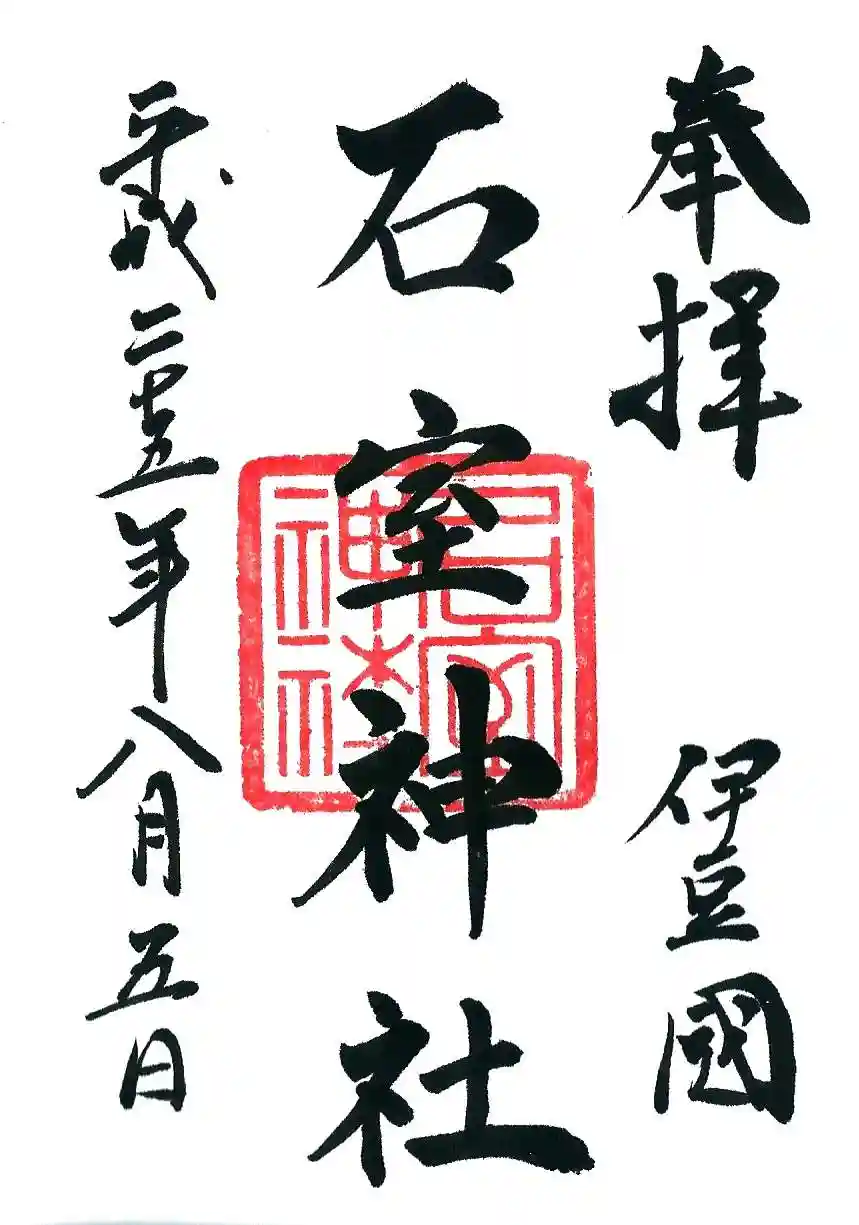 奉拝
伊豆國
石室神社
平成二十五年八月五日
石室神社